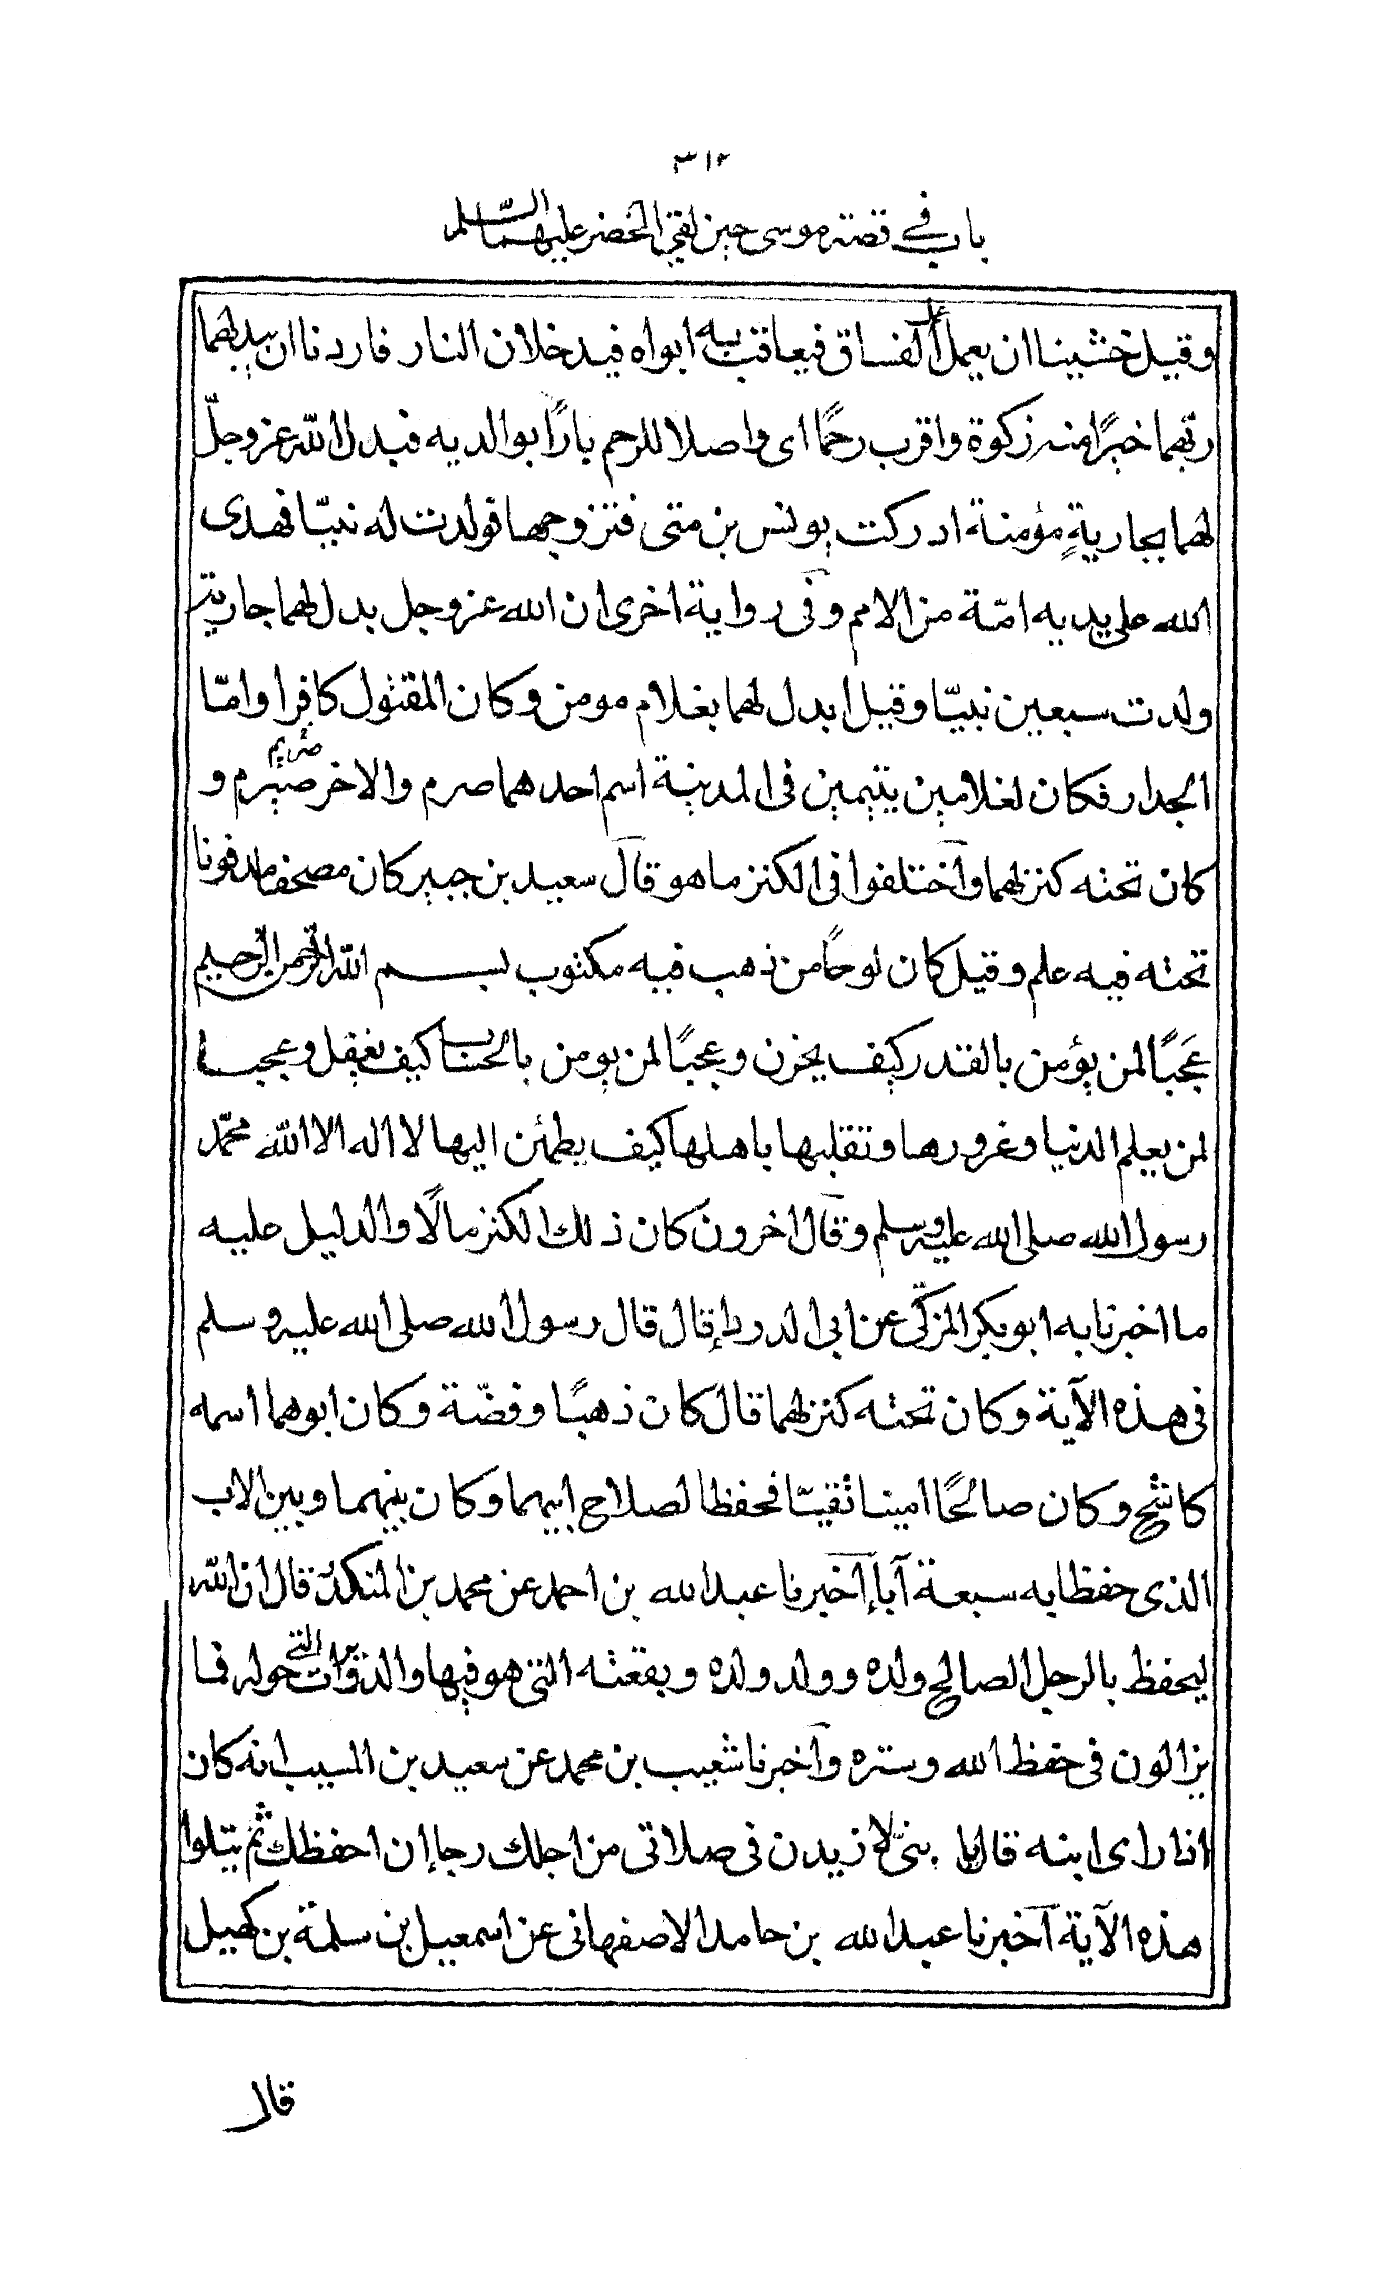 ٣١٢
باب في قصة موسى حين لقي الخضر عليهما السلم
وقيل خشينا ان يعمل عمل الفساق فيعاقب به ابواه فيدخلان النار فاردنا ان يبدلهما
ربهما خيرًا منه زكوة واقرب رحمًا اى واصلا للرحم بارًا بوالديه فبدل الله عز وجلّ
لهما بجاريةٍ مؤمنة ادركت يونس بن متى فتزوجها فولدت له نبيّا فهدى
الله على يديه امّة من الامم وفى رواية اخرى ان الله عز وجل بدل لهما جارية
ولدت سبعين نبيّا وقيل ابدل لهما بغلام مومن وكان المقتول كافرا وامّا
الجدار فكان لغلامين يتيمين فى المدينة اسم احدهما صرم والاخر صيرم و
صريم
كان تحته كنز لهما واختلفوا فى الكنز ما هو قال سعيد بن جبير كان مصحفا مدفونا
تحته فيه علم وقيل كان لوحًا من ذهب فيه مكتوب بسم الله الرحمن الرحيم
عَجَبًا لمن يؤمن بالقدر كيف يحزن وعجبًا لمن يومن بالحساب كيف يغفل وعجبا
لمن يعلم الدنيا وغرورها وتقلبها باهلها كيف يطمئن اليها لا اله الا الله محمّد
رسول الله صلى الله عليه وسلم وقال اخرون كان ذلك الكنز مالًا والدليل عليه
ما اخبرنا به ابو بكر المزكّى عن ابى الدرداء قال قال رسول الله صلى الله عليه وسلم
فى هذه الآية وكان تحته كنز لهما قال كان ذهبًا وفضّة وكان ابوهما اسمه
كاشح وكان صالحًا امينا تقيّا فحفظا لصلاح ابيهما وكان بينهما وبين الاب
الذى حفظا به سبعة آباء اخبرنا عبد الله بن احمد عن محمد بن المنكدر قال ان الله
ليحفظ بالرجل الصالح ولده وولد ولده وبقعته التى هو فيها والدويرات التي حوله فما
يزالون فى حفظ الله وستره واخبرنا شعيب بن محمد عن سعيد بن المسيب انه كان
اذا راى ابنه قال يا بنىّ لازيدن فى صلاتى من اجلك رجاء ان احفظك ثم يتلوا
هذه الآية اخبرنا عبد الله بن حامد الاصفهانى عن اسمعيل بن سلمة بن كهيل
قال